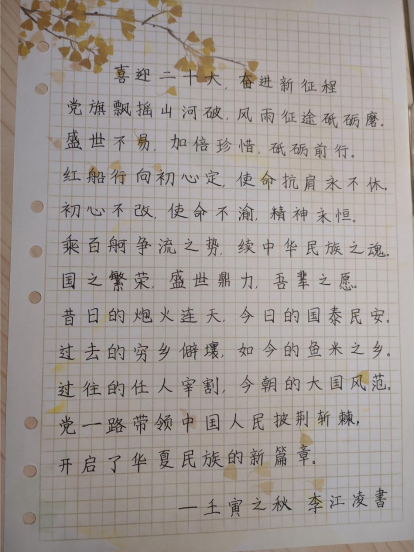 喜迎二十大,奋进新征程
党旗飘摇山河破,风雨征途砥砺磨。
盛世不易,加倍珍惜,砥砺前行。
红船行向初心定,使命抗肩永不休。
初心不改,使命不渝,精神永恒。
乘百舸争流之势,续中华民族之魂。
国之繁荣,盛世鼎力,吾辈之愿。
昔日的炮火连天,今日的国泰民安。
过去的穷乡僻壤,如今的鱼米之乡。
过往的任人宰割,今朝的大国风范。
党一路带领中国人民披荆斩棘,
开启了华夏民族的新篇章。
—壬寅之秋 李江凌書